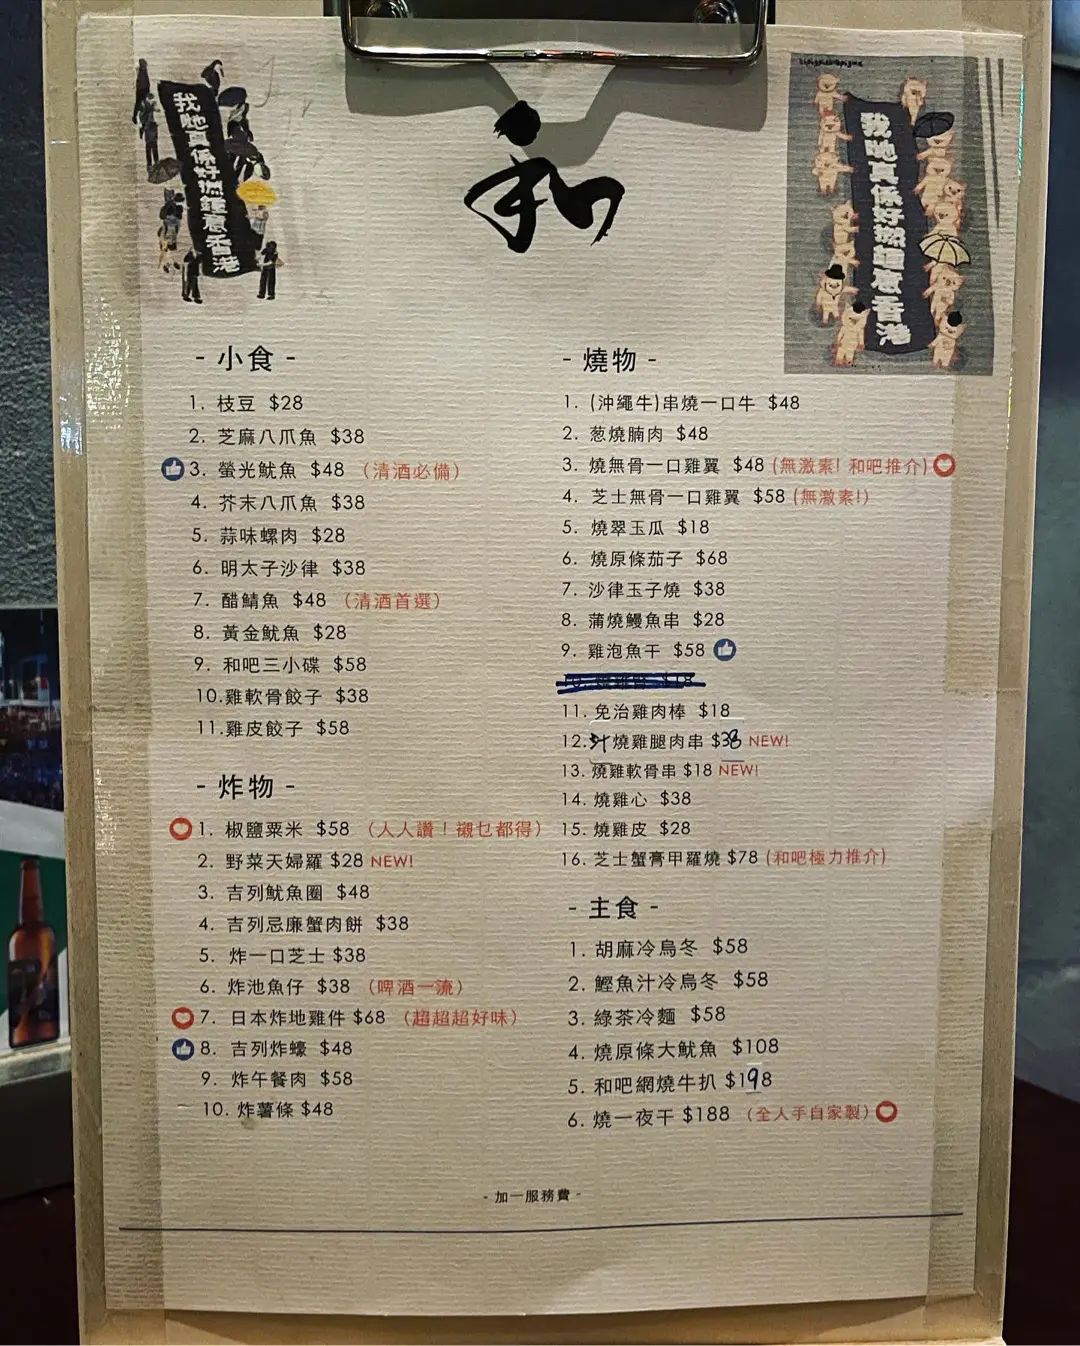 我哋真係好撚鍾意香港
和
我哋真係好撚鍾意香港
- 小食 -
1. 枝豆 $28
2. 芝麻八爪魚 $38
3. 螢光魷魚 $48 （清酒必備）
4. 芥末八爪魚 $38
5. 蒜味螺肉 $28
6. 明太子沙律 $38
7. 醋鯖魚 $48 （清酒首選）
8. 黃金魷魚 $28
9. 和吧三小碟 $58
10.雞軟骨餃子 $38
11.雞皮餃子 $58
- 炸物 -
1. 椒鹽粟米 $58 （人人讚！襯乜都得）
2. 野菜天婦羅 $28 NEW!
3. 吉列魷魚圈 $48
4. 吉列忌廉蟹肉餅 $38
5. 炸一口芝士 $38
6. 炸池魚仔 $38 （啤酒一流）
7. 日本炸地雞件 $68 （超超超好味）
8. 吉列炸蠔 $48
9. 炸午餐肉 $58
10. 炸薯條 $48
- 燒物 -
1. (沖繩牛)串燒一口牛 $48
2. 葱燒腩肉 $48
3. 燒無骨一口雞翼 $48 (無激素! 和吧推介)
4. 芝士無骨一口雞翼 $58 (無激素!)
5. 燒翠玉瓜 $18
6. 燒原條茄子 $68
7. 沙律玉子燒 $38
8. 蒲燒鰻魚串 $28
9. 雞泡魚干 $58
11. 免治雞肉棒 $18
12.汁燒雞腿肉串 $38 NEW!
13. 燒雞軟骨串 $18 NEW!
14. 燒雞心 $38
15. 燒雞皮 $28
16. 芝士蟹膏甲羅燒 $78 (和吧極力推介)
- 主食 -
1. 胡麻冷烏冬 $58
2. 鰹魚汁冷烏冬 $58
3. 綠茶冷麵 $58
4. 燒原條大魷魚 $108
5. 和吧網燒牛扒 $198
6. 燒一夜干 $188 （全人手自家製）
- 加一服務費 -